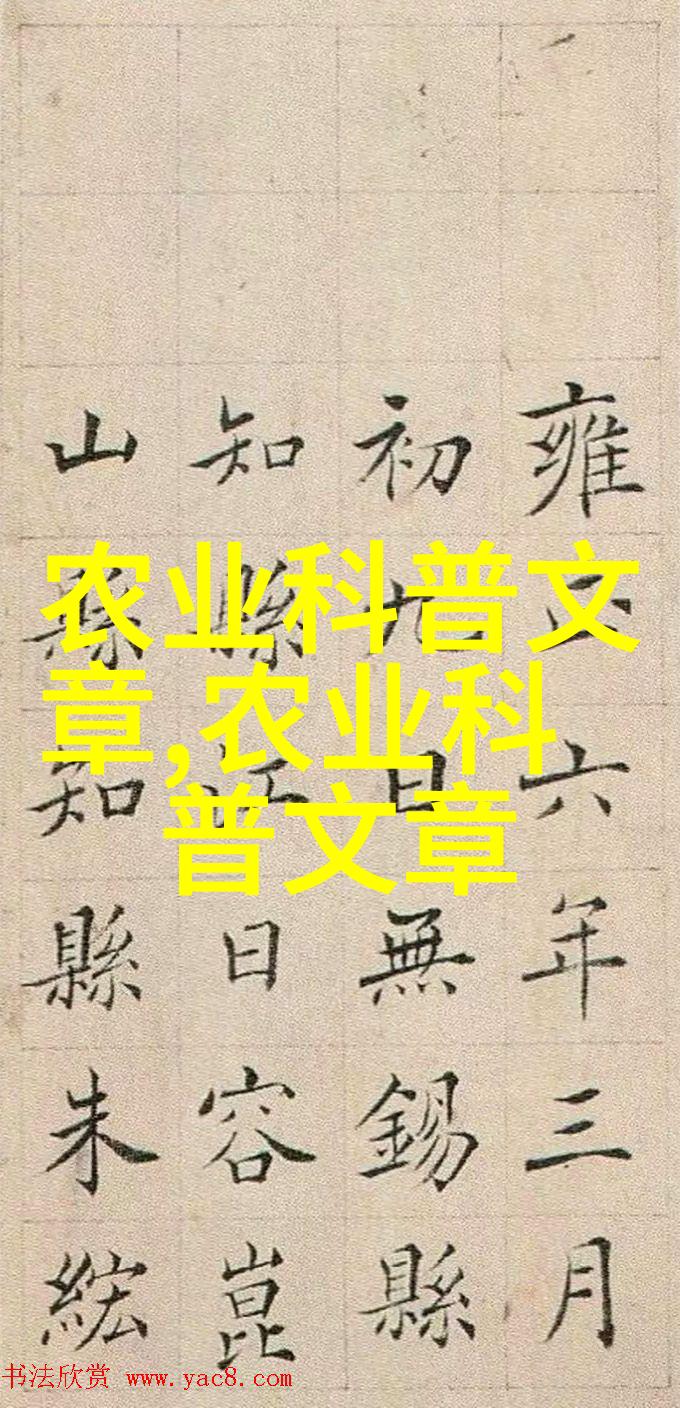 农业科普文
章,农业科
普文章
雍正六年三月
初九日無錫縣
知縣江日容崑
山縣知縣朱綋
书法欣赏 www.yac8.com